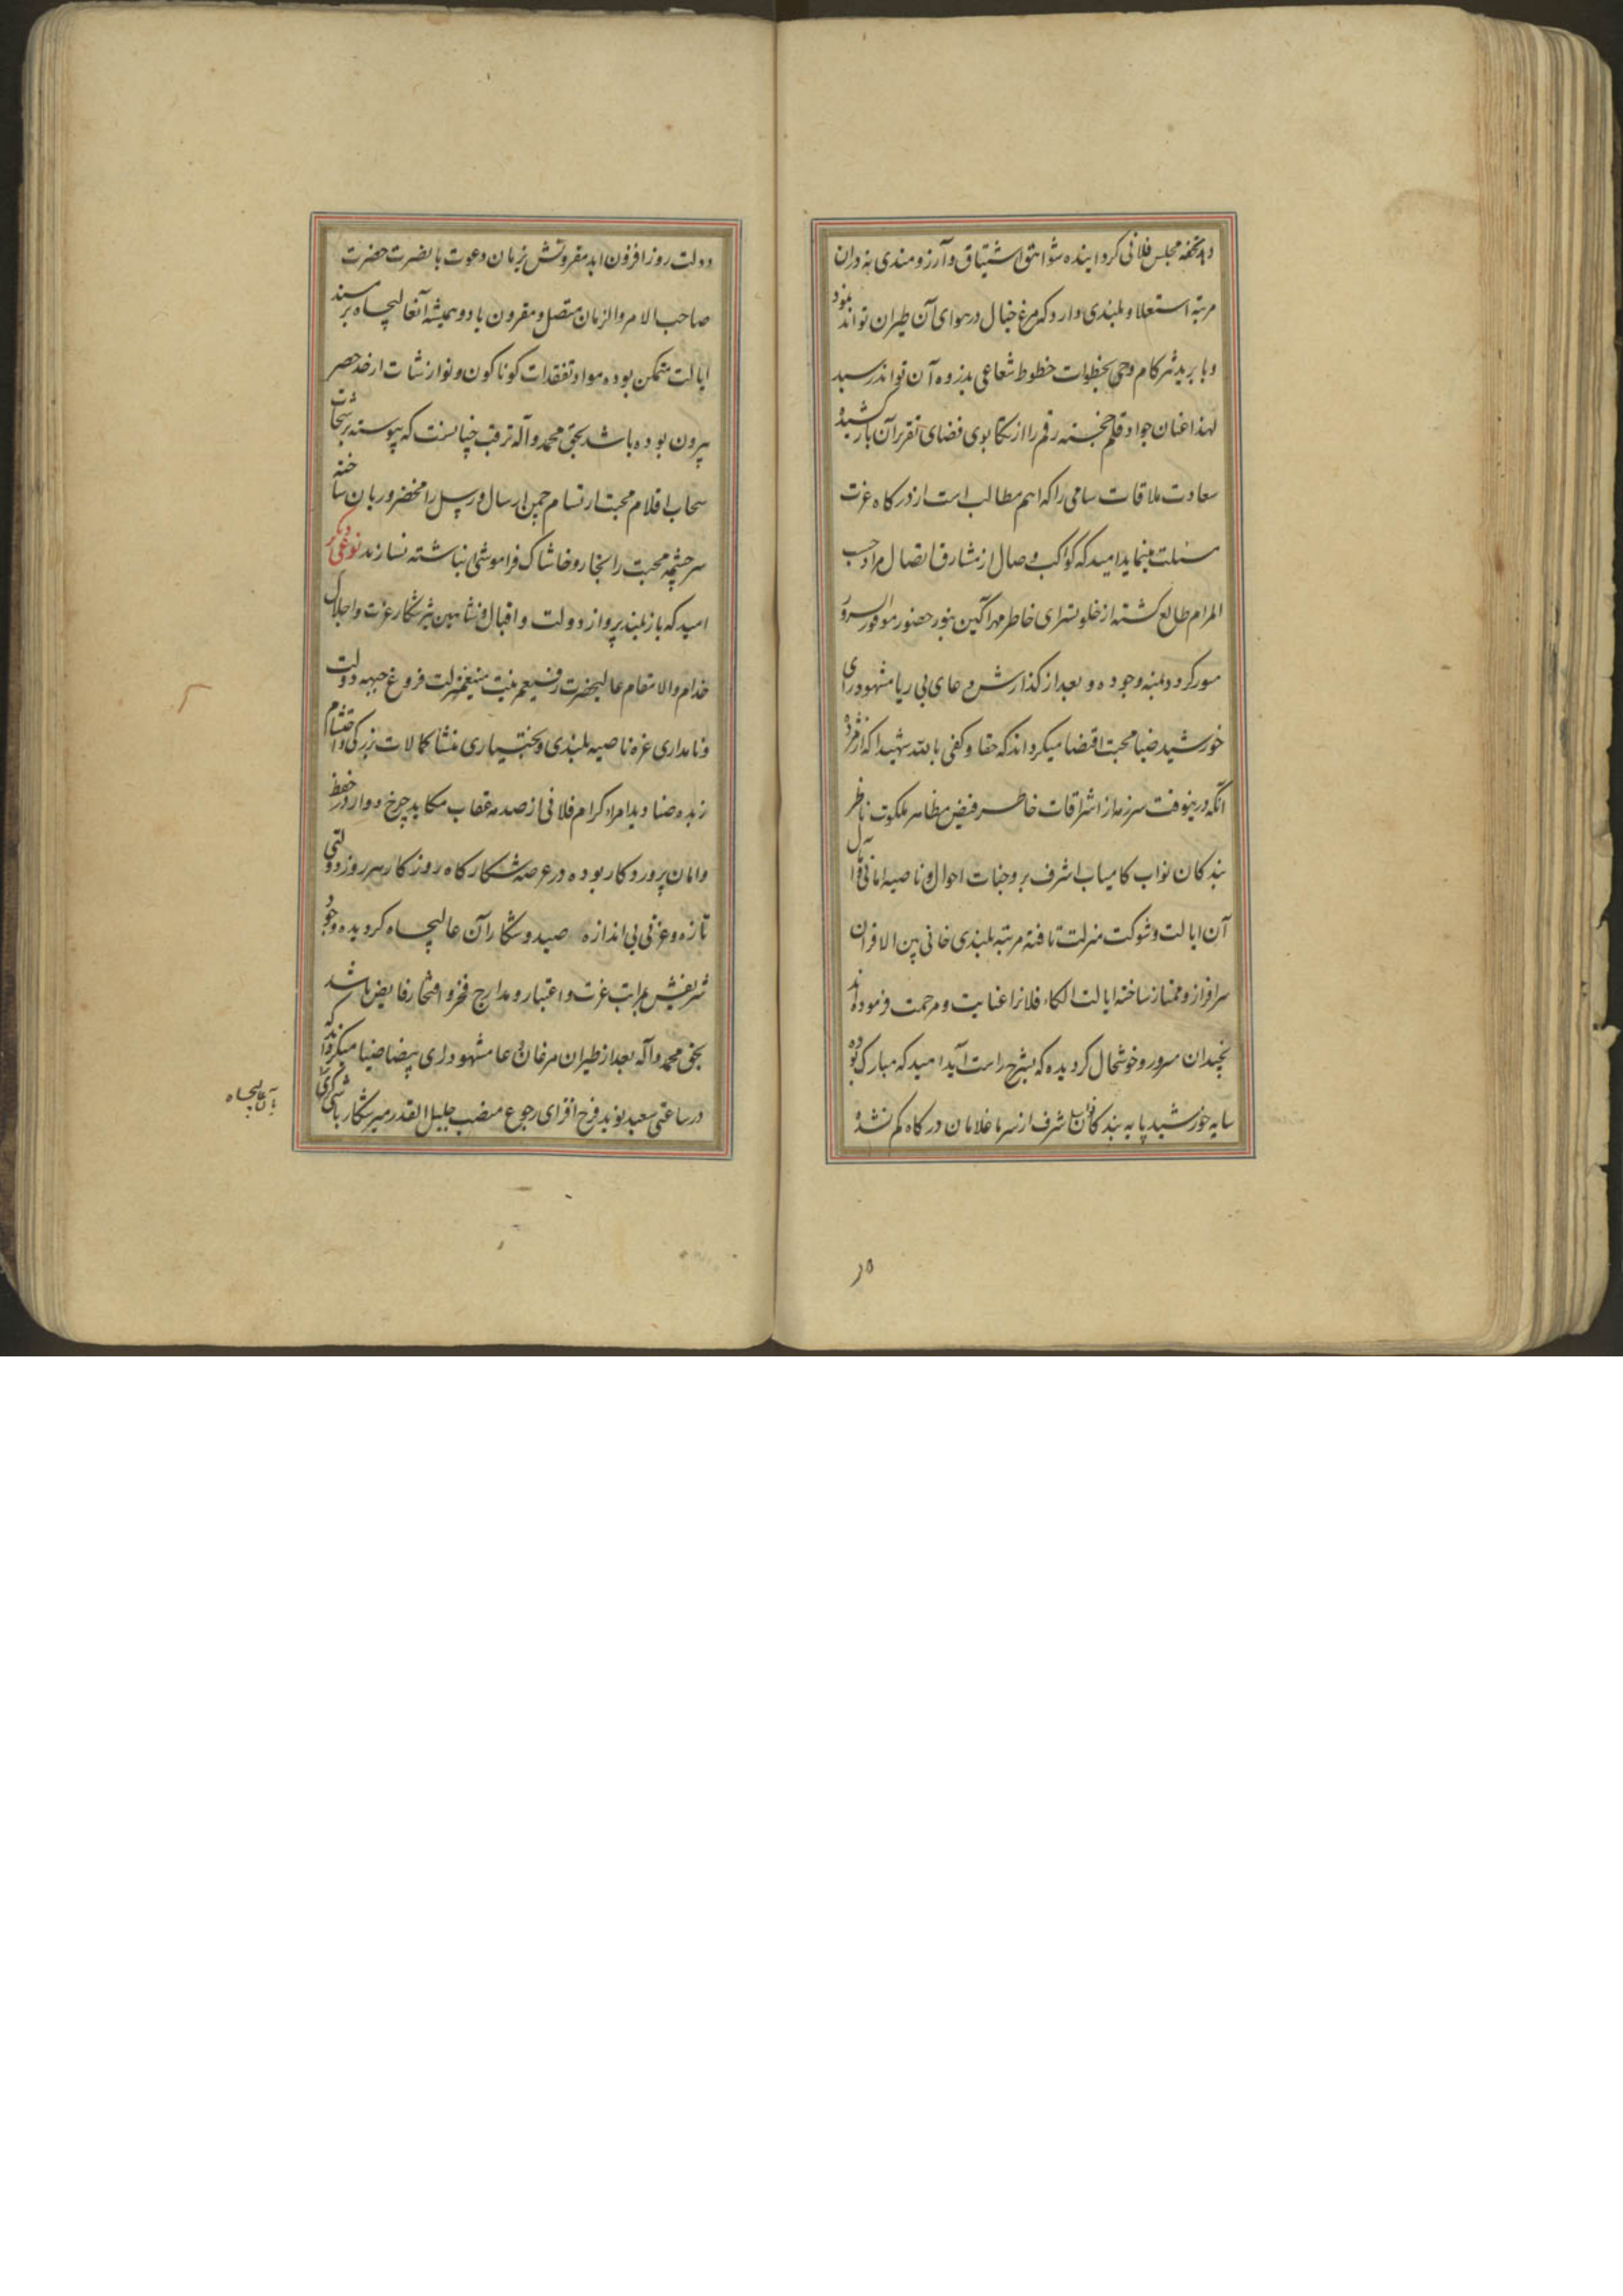 مجلس فلانی کردانیده شواهق اشتیاق و آرزومندی نه دران
مرتبه استعلا و بلندی دارد که مرغ خیال در هوای آن طیران تواند نمود
و یا برید تیزکام وهم بخطوات خطوط شعاعی بذروه آن تواند رسید
لهذا عنان جواد قلم خجسته رقم را از تکاپوی فضای تقریر آن باز کشیده
سعادت ملاقات سامی را که اهم مطالب است از درکاه عزت
مسئلت مینماید امید که کواکب وصال از مشارق اتصال مرادحسب
المرام طالع کشته از خلوتسرای خاطر مهرآکین بنور حضور موفور السرور
منور کردد بمنه وجوده و بعد از کذارش دعای بی ریا مشهود رای
خورشید ضیا محبت اقتضا میکرداند که حقا و کفی بالله شهیدا که از مژده
آنکه درینوقت سرزمه از اشراقات خاطر فیض مظاهر ملکوت ناظر
بندکان نواب کامیاب اشرف بر وجنات احوال و ناصیه امانی و آمال
آن ایالت و شوکت منزلت تافته مرتبه بلندی خانی بین الاقران
سرافراز و ممتاز ساخته ایالت الکاء فلانرا عنایت و مرحمت فرموده اند
نچندان مسرور و خوشحال کردیده که بشرح راست آید امید که مبارک بوده
سایه خورشید پایه بندکان نواب اشرف از سر ما غلامان درکاه کم نشده
دولت روزافزون ابد مقرونش بزمان دعوت با نصرت حضرت
صاحب الامر والزمان متصل و مقرون باد و همیشه آنعالیجاه بر مسند
ایالت متمکن بوده مواد تفقدات کوناکون و نوازشات از حد حصر
بیرون بوده باشد بحق محمد وآله ترقب چنانست که پیوسته برشحات
سحاب اقلام محبت ارتسام چمن ارسال و رسل را مخضر و ریان ساخته
سرچشمه محبت را بخار و خاشاک فراموشی نباشته نسازند نوعی دیکر
امید که باز بلند پرواز دولت و اقبال و شاهین تیزشکار عزت و اجلال
خدام والا مقام عالیحضرت رفیع مرتبت منیع منزلت فروغ جبهه دولت
و نامداری غره ناصیه بلندی و بختیاری منشا کمالات بزرکی و احتشام
زبده صنادید امراء کرام فلانی از صدمه عقاب مکاید چرخ دوار در حفظ
و امان پروردکار بوده در عرصه شکارکاه روزکار هر روز دولتی
تازه و عزتی بی اندازه صید و شکار آن عالیجاه کردیده وجود
شریفش بمراتب عزت و اعتبار و مدارج فخر و افتخار فایض باشد
بحق محمد وآله بعد از طیران مرغان دعا مشهود رای بیضا ضیا میکرداند که
در ساعتی سعید نوید فرح افزای رجوع منصب جلیل القدر میرشکار باشی کری
بآن عالیجاه